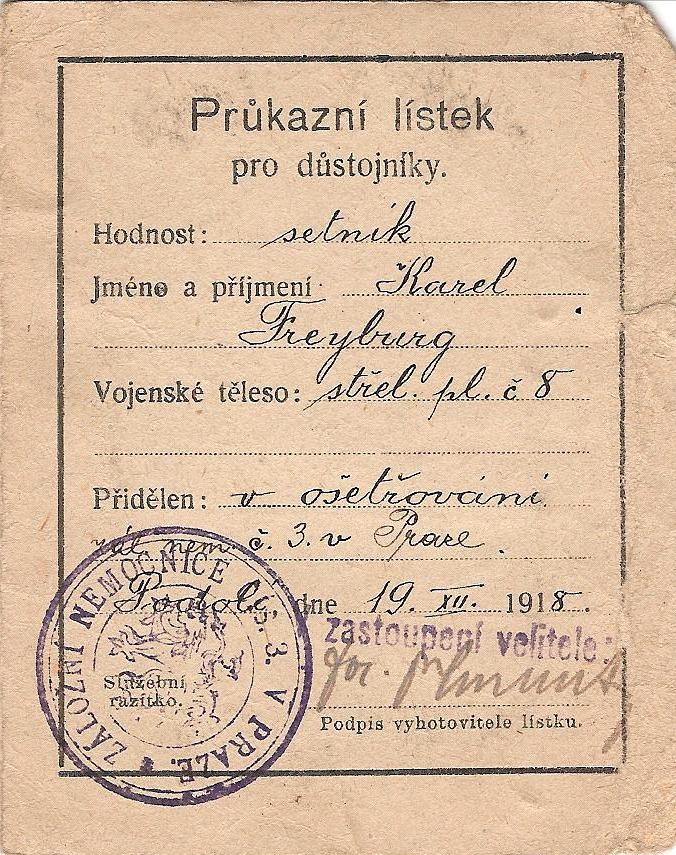 Průkazní lístek
pro důstojníky.
Hodnost: setník
Jméno a příjmení Karel
Freyburg
Vojenské těleso: střel. pl. č 8
Přidělen: v ošetřování
zál. nem. č. 3. v Praze.
Podolí dne 19. XII. 1918.
zastoupení velitele:
Podpis vyhotovitele lístku.
Služební
razítko.
ZÁLOŽNÍ NEMOCNICE ČÍS. 3. V PRAZE.